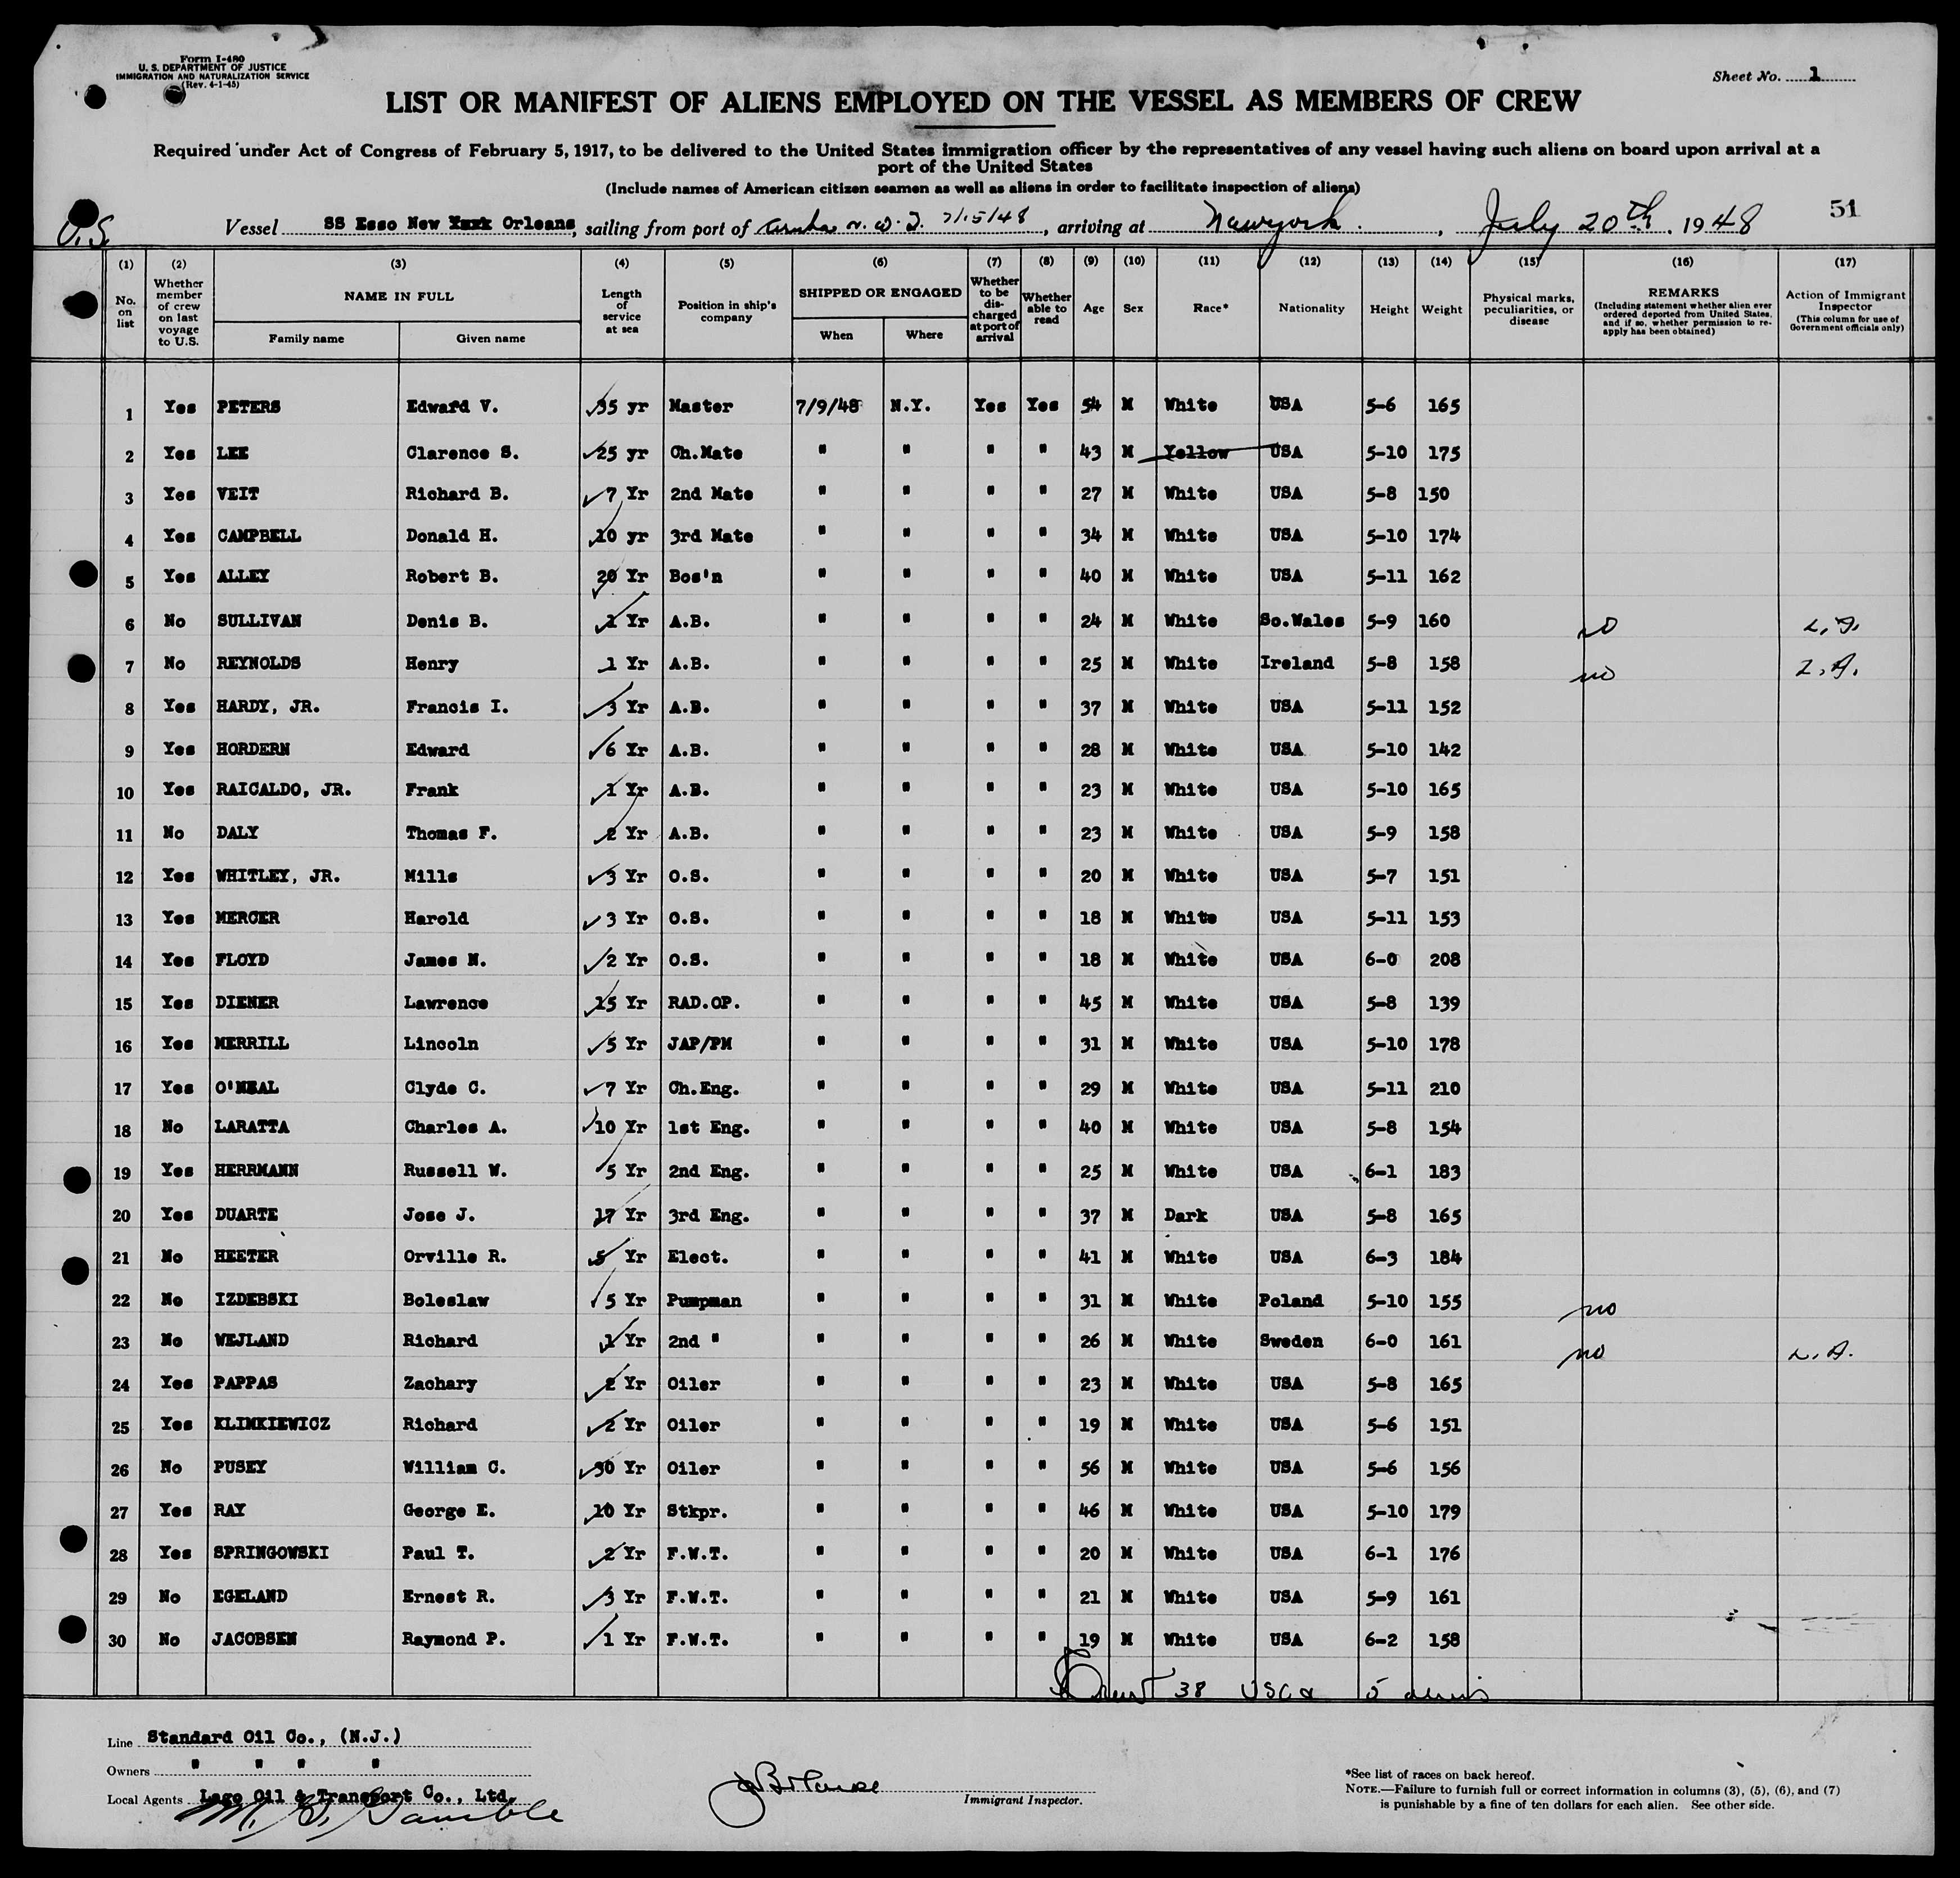 Form I-480
U. S. DEPARTMENT OF JUSTICE
IMMIGRATION AND NATURALIZATION SERVICE
(Rev. 4-1-45)
Sheet No. 1
LIST OR MANIFEST OF ALIENS EMPLOYED ON THE VESSEL AS MEMBERS OF CREW
Required under Act of Congress of February 5, 1917, to be delivered to the United States immigration officer by the representatives of any vessel having such aliens on board upon arrival at a
port of the United States
(Include names of American citizen seamen as well as aliens in order to facilitate inspection of aliens)
51
Vessel SS Esso New York Orleans, sailing from port of Aruba N. W. I. 7/15/48, arriving at New york, July 20th, 1948
(1) (2) (3) (4) (5) (6) (7) (8) (9) (10) (11) (12) (13) (14) (15) (16) (17)
No. on list Whether member of crew on last voyage to U.S. NAME IN FULL Family name Given name Length of service at sea Position in ship's company SHIPPED OR ENGAGED When Where Whether to be discharged at port of arrival Whether able to read Age Sex Race* Nationality Height Weight Physical marks, peculiarities, or disease REMARKS (Including statement whether alien ever ordered deported from United States, and if so, whether permission to reapply has been obtained) Action of Immigrant Inspector (This column for use of Government officials only)
1 Yes PETERS Edward V. 35 yr Master 7/9/48 N.Y. Yes Yes 54 M White USA 5-6 165
2 Yes LEE Clarence S. 25 yr Ch.Mate " " " " 43 M Yellow USA 5-10 175
3 Yes VEIT Richard B. 7 Yr 2nd Mate " " " " 27 M White USA 5-8 150
4 Yes CAMPBELL Donald H. 10 yr 3rd Mate " " " " 34 M White USA 5-10 174
5 Yes ALLEY Robert B. 20 Yr Bos'n " " " " 40 M White USA 5-11 162
6 No SULLIVAN Denis B. 1 Yr A.B. " " " " 24 M White So.Wales 5-9 160 no
7 No REYNOLDS Henry 1 Yr A.B. " " " " 25 M White Ireland 5-8 158 no
8 Yes HARDY, JR. Francis I. 3 Yr A.B. " " " " 37 M White USA 5-11 152
9 Yes HORDERN Edward 6 Yr A.B. " " " " 28 M White USA 5-10 142
10 Yes RAICALDO, JR. Frank 1 Yr A.B. " " " " 23 M White USA 5-10 165
11 No DALY Thomas F. 2 Yr A.B. " " " " 23 M White USA 5-9 158
12 Yes WHITLEY, JR. Mills 3 Yr O.S. " " " " 20 M White USA 5-7 151
13 Yes MERCER Harold 3 Yr O.S. " " " " 18 M White USA 5-11 153
14 Yes FLOYD James N. 2 Yr O.S. " " " " 18 M White USA 6-0 208
15 Yes DIENER Lawrence 15 Yr RAD.OP. " " " " 45 M White USA 5-8 139
16 Yes MERRILL Lincoln 5 Yr JAP/PM " " " " 31 M White USA 5-10 178
17 Yes O'NEAL Clyde C. 7 Yr Ch.Eng. " " " " 29 M White USA 5-11 210
18 No LARATTA Charles A. 10 Yr 1st Eng. " " " " 40 M White USA 5-8 154
19 Yes HERRMANN Russell W. 5 Yr 2nd Eng. " " " " 25 M White USA 6-1 183
20 Yes DUARTE Jose J. 17 Yr 3rd Eng. " " " " 37 M Dark USA 5-8 165
21 No HEETER Orville R. 5 Yr Elect. " " " " 41 M White USA 6-3 184
22 No IZDEBSKI Boleslaw 5 Yr Pumpman " " " " 31 M White Poland 5-10 155 no
23 No WEJLAND Richard 1 Yr 2nd " " " " " 26 M White Sweden 6-0 161 no
24 Yes PAPPAS Zachary 2 Yr Oiler " " " " 23 M White USA 5-8 165
25 Yes KLIMKIEWICZ Richard 2 Yr Oiler " " " " 19 M White USA 5-6 151
26 No PUSEY William C. 30 Yr Oiler " " " " 56 M White USA 5-6 156
27 Yes RAY George E. 10 Yr Stkpr. " " " " 46 M White USA 5-10 179
28 Yes SPRINGOWSKI Paul T. 2 Yr F.W.T. " " " " 20 M White USA 6-1 176
29 No EGELAND Ernest R. 3 Yr F.W.T. " " " " 21 M White USA 5-9 161
30 No JACOBSEN Raymond P. 1 Yr F.W.T. " " " " 19 M White USA 6-2 158
38 USCs 5 aliens
Line Standard Oil Co., (N.J.)
Owners " " " "
Local Agents Lago Oil & Transport Co., Ltd.
Immigrant Inspector.
*See list of races on back hereof.
NOTE.—Failure to furnish full or correct information in columns (3), (5), (6), and (7)
is punishable by a fine of ten dollars for each alien. See other side.